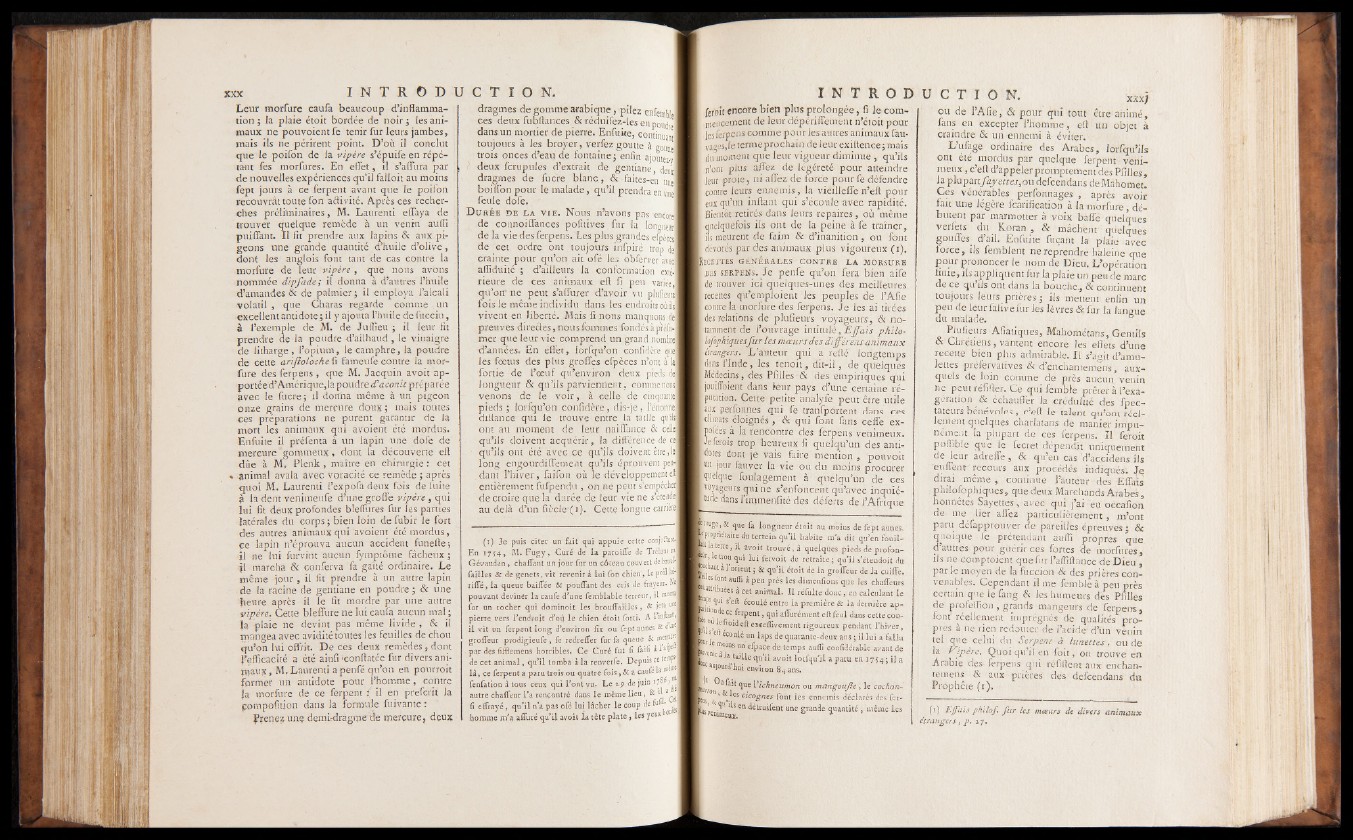 xxx INTRODUCTION.
Leur morsure causa beaucoup d'inflamma-
tion ; la plaie étoit bordée de noir ; les ani-
maux ne pouvoient se tenir sur leurs jambes,
mais ils ne périrent point. D'où il conclut
que le poison de la vipère s'épuise en répé-
tant ses morsures. En effet, il s'assura par
de nouvelles expériences qu'il falloit au moins
sept jours à ce serpent avant que le poison
recouvrât toute son activité. Après ces recher-
ches préliminaires, M. Laurenti essaya de
trouver quelque remède à un venin aussi
puissant. Il fit prendre aux lapins & aux pi-
geons une grande quantité d'huile d'olive,
dont les anglois font tant de cas contre la
morsure de leur vipère, que nous avons
nommée dipsade ; il donna à d'autres l'huile
d'amandes & de palmier ; il employa l'alcali
volatil, que Charas regarde comme un
excellent antidote ; il y ajouta l'huile de succin,
à l'exemple de M. de Jussieu ; il leur fit
prendre de la poudre d'ailhaud, le vinaigre
de litharge, l'opium, le camphre, la poudre
de cette aristoloche si fameuse contre la mor-
sure des serpens, que M. Jacquin avoit ap-
portée d'Amérique, la poudre d'aconit préparée
avec le sucre ; il donna même à un pigeon
onze grains de mercure doux ; mais toutes
ces préparations ne purent garantir de la
mort les animaux qui avoient été mordus.
Ensuite il présenta à un lapin une dose de
mercure gommeux, dont la découverte est
dûe à M. Plenk, maitre en chirurgie : cet
animal avala avec voracité ce remède ; après
quoi M. Laurenti l'exposa deux fois de suite
à la dent venimeuse d'une grosse vipère, qui
lui fit deux profondes blessures sur les parties
latérales du corps ; bien loin de subir le sort
des autres animaux qui avoient été mordus,
ce lapin n'éprouva aucun accident funeste ;
il ne lui survint aucun symptôme fâcheux ;
il marcha & conserva sa gaité ordinaire. Le
même jour, il fit prendre à un autre lapin
de la racine de gentiane en poudre ; & une
heure après il le fit mordre par une autre
vipère. Cette blessure ne lui causa aucun mal ;
la plaie ne devint pas même livide, & il
mangea avec avidité toutes les feuilles de chou
qu'on lui offrit. De ces deux remèdes, dont
l'efficacité a été ainsi constatée sur divers ani-
maux, M. Laurenti a pensé qu'on en pourroit
former un antidote pour l'homme, contre
la morsure de ce serpent : il en prescrit la
composition dans la formule suivante :
Prenez une demi-dragme de mercure, deux
dragmes de gomme arabique, pilez ensemble
ces deux substances & réduisez-les en poudre
dans un mortier de pierre. Ensuite, continuant
toujours à les broyer, versez goutte à goutte
trois onces d'eau de fontaine ; enfin ajoutez-y
deux scrupules d'extrait de gentiane, deux
dragmes de sucre blanc, & faites-en une
boisson pour le malade, qu'il prendra en une
seule dose.
DURÉE DE LA VIE. Nous n'avons pas encore
de connoissances positives sur la longueur
de la vie des serpens. Les plus grandes espèces
de cet ordre ont toujours inspiré trop de
crainte pour qu'on ait osé les observer avec
assiduité ; d'ailleurs la conformation exté-
rieure de ces animaux est si peu variée,
qu'on ne peut s'assurer d'avoir vu plusieurs
fois le même individu dans les endroits où ils
vivent en liberté. Mais si nous manquons de
preuves directes, nous sommes fondés à présu-
mer que leur vie comprend un grand nombre
d'années. En effet, lorsqu'on considère que
les fœtus des plus grosses espèces n'ont à la
sortie de l'œuf qu'environ deux pieds de
longueur & qu'ils parviennent, comme nous
venons de le voir, à celle de cinquante
pieds ; lorsqu'on considère, dis-je, l'énorme
distance qui se trouve entre la taille qu'ils
ont au moment de leur naissance & celle
qu'ils doivent acquérir, la différence de ce
qu'ils ont été avec ce qu'ils doivent être, le
long engourdissement qu'ils éprouvent pen-
dant l'hiver, saison où le développement est
entièrement suspendu, on ne peut s'empêcher
de croire que la durée de leur vie ne s'étende
au delà d'un siècle (1). Cette longue carrière
(1) Je puis citer un fait qui appuie cette conjecture.
En 1754, M. Fugy, Curé de la paroisse de
Gévaudan, chassant un jour sur un côteau couvert de brous-
sailles & de genets, vit revenir à lui son chien, le poil hé-
rissé, la queue baissée & poussant des cris de frayeur. Ne
pouvant deviner la cause d'une semblable terreur, il monta
sur un rocher qui dominoit les broussailles, & jeta une
pierre vers l'endroit d'où le chien étoit sorti. A l'instant,
il vit un serpent long d'environ six ou sept aunes & d'une
grosseur prodigieuse, se redresser sur sa queue & menacer
par des sifflemens horribles. Ce Curé fut si saisi à l'aspect
de cet animal, qu'il tomba à la renverse. Depuis ce temps-
là, ce serpent a paru trois ou quatre fois, & a causé la même
sensation à tous ceux qui l'ont vu. Le 29 de juin 1786, un
autre chasseur l'a rencontré dans le même lieu, & il a été
si effrayé, qu'il n'a pas osé lui lâcher le coup de fusil. Cet
homme m'a assuré qu'il avoit la tête plate, les yeux bordés
INTRODUCTION. xxxj
seroit encore bien plus prolongée, si le com-
mencement de leur dépérissement n'étoit pour
les serpens comme pour les autres animaux sau-
vages, le terme prochain de leur existence ; mais
du moment que leur vigueur diminue, qu'ils
n'ont plus assez de légéreté pour atteindre
leur proie, ni assez de force pour se défendre
contre leurs ennemis, la vieillesse n'est pour
eux qu'un instant qui s'écoule avec rapidité.
Bientôt retirés dans leurs repaires, où même
quelquefois ils ont de la peine à se trainer,
ils meurent de faim & d'inanition, ou sont
dévorés par des animaux plus vigoureux (1).
RECETTES GÉNÉRALES CONTRE LA MORSURE
DES SERPENS. Je pense qu'on sera bien aise
de trouver ici quelques-unes des meilleures
recettes qu'emploient les peuples de l'Asie
contre la morsure des serpens. Je les ai tirées
des relations de plusieurs voyageurs, & no-
tamment de l'ouvrage intitulé, Essais philo-
sophiques sur les mœurs des différens animaux
étrangers. L'auteur qui a resté longtemps
dans l'Inde, les tenoit, dit-il, de quelques
Médecins, des Psilles & des empiriques qui
jouissoient dans leur pays d'une certaine ré-
putation. Cette petite analyse peut être utile
aux personnes qui se transportent dans ces
climats éloignés, & qui sont sans cesse ex-
posées à la rencontre des serpens venimeux.
Je serois trop heureux si quelqu'un des anti-
dotes dont je vais faire mention, pouvoit
un jour sauver la vie ou du moins procurer
quelque soulagement à quelqu'un de ces
voyageurs qui ne s'enfoncent qu'avec inquié-
tude dans l'immensité des déserts de l'Afrique
rouge, & que sa longueur étoit au moins de sept aunes.
Le propriétaire du terrein qu'il habite m'a dit qu'en fouil-
lant la terre, il avoit trouvé, à quelques pieds de profon-
deur, le trou qui lui servoit de retraite ; qu'il s'étendoit du
à l'orient ; & qu'il étoit de la grosseur de la cuisse.
Telles sont aussi à peu près les dimensions que les chasseurs
ont attribuées à cet animal. Il résulte donc, en calculant le
temps qui s'est écoulé entre la première & la dernière ap-
parition de ce serpent, qui assurément est seul dans cette con-
trée où le froid est excessivement rigoureux pendant l'hiver,
qu'il s'est écoulé un laps de quarante-deux ans ; il lui a fallu
pour le moins un espace de temps aussi considérable avant de
parvenir à la taille qu'il avoit lorsqu'il a paru en 1754 ; il a
donc aujourd'hui environ 84 ans.
(1) On sait que l'ichneumon ou mangouste, le cochon-
marron, & les cicognes sont les ennemis déclarés des ser-
pens, & qu'ils en détruisent une grande quantité, même les
plus venimeux.
ou de l'Asie, & pour qui tout être animé,
sans en excepter l'homme, est un objet à
craindre & un ennemi à éviter.
L'usage ordinaire des Arabes, lorsqu'ils
ont été mordus par quelque serpent veni-
mieux, c'est d'appeler promptement des Psilles,
la plupart sayettes, ou descendans de Mahomet.
Ces vénérables personnages, après avoir
fait une légère scarification à la morsure, dé-
butent par marmotter à voix basse quelques
versets du Koran, & mâchent quelques
gousses d'ail. Ensuite suçant la plaie avec
force, ils semblent ne reprendre haleine que
pour prononcer le nom de Dieu. L'opération
finie, ils appliquent sur la plaie un peu de marc
de ce qu'ils ont dans la bouche, & continuent
toujours leurs prières ; ils mettent enfin un
peu de leur salive sur les lèvres & sur la langue
du malade.
Plusieurs Asiatiques, Mahométans, Gentils
& Chrétiens, vantent encore les effets d'une
recette bien plus admirable. Il s'agit d'amu-
lettes préservatives & d'enchantemens, aux-
quels de loin comme de près aucun venin
ne peut résister. Ce qui semble prêter à l'exa-
gération & échauffer la crédulité des spec-
tateurs bénévoles, c'est le talent qu'ont réel-
lement quelques charlatans de manier impu-
nément la plupart de ces serpens. Il seroit
possible que le secret dépendît uniquement
de leur adresse, & qu'en cas d'accidens ils
eussent recours aux procédés indiqués. Je
dirai même, continue l'auteur des Essais
philosophiques, que deux Marchands Arabes,
honnêtes Sayettes, avec qui j'ai eu occasion
de me lier assez particulièrement, m'ont
paru désapprouver de pareilles épreuves ; &
quoique se prétendant aussi propres que
d'autres pour guérir ces sortes de morsures,
ils ne comptoient que sur l'assistance de Dieu,
par le moyen de la succion & des prières con-
venables. Cependant il me semble à peu près
certain que le sang & les humeurs des Psilles
de profession, grands mangeurs de serpens,
sont réellement imprégnés de qualités pro-
pres à ne rien redouter de l'acide d'un venin
tel que celui du Serpent à lunettes, ou de
la Vipère. Quoi qu'il en soit, on trouve en
Arabie des serpens qui résistent aux enchan-
temens & aux prières des descendans du
Prophète (1).
(1) Essais philos. sur les mœurs de divers animaux
étrangers, p. 27.